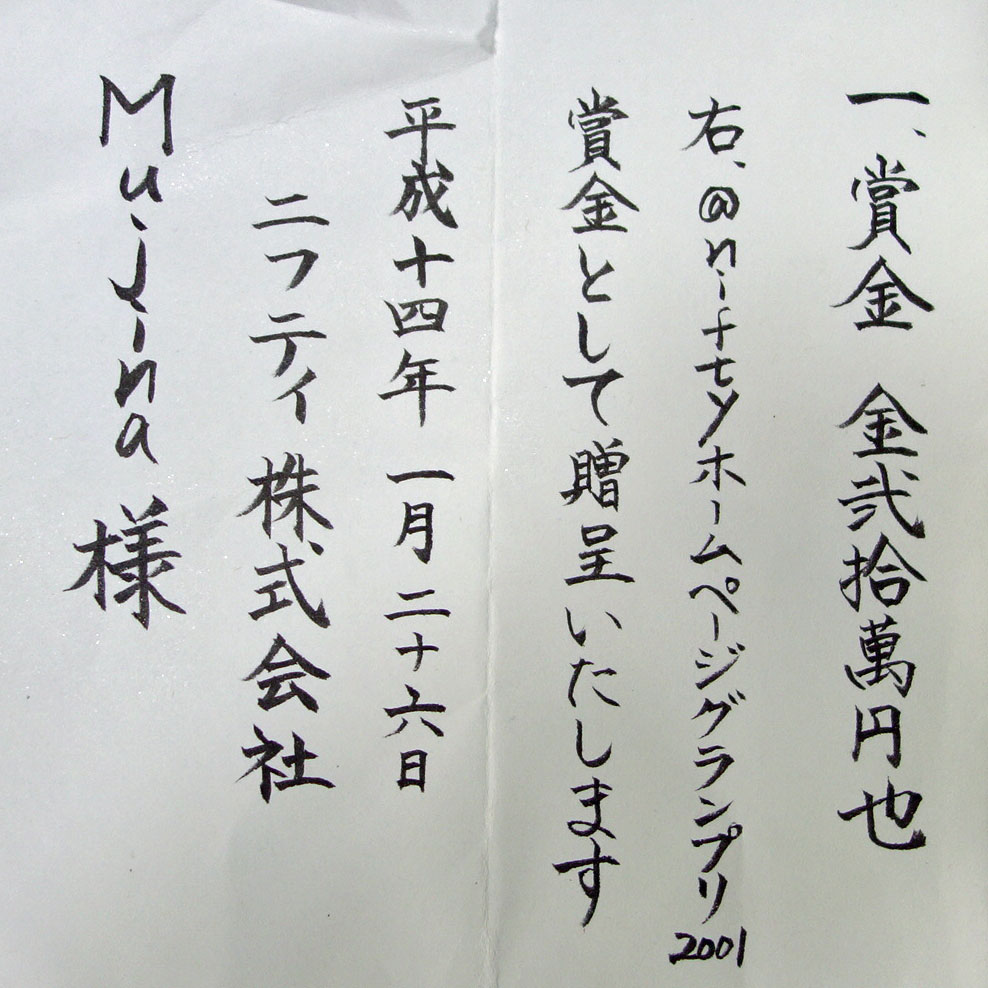 一、賞金 金弐拾萬円也
右、@niftyホームページグランプリ2001
賞金として贈呈いたします
平成十四年 一月二十六日
ニフティ株式会社
Mujina様